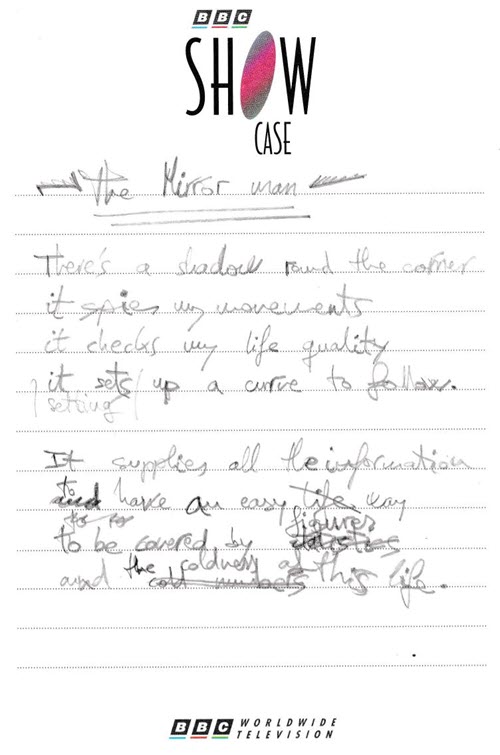 BBC
SHOW
CASE
The Mirror man
There's a shadow round the corner
it spies my movements
it checks my life quality
it sets up a curve to follow.
setting
It supplies all the information
to
and have an easy life way
figures
to be covered by statistics
the coldness of
and cold numbers this life.
BBC WORLDWIDE
TELEVISION